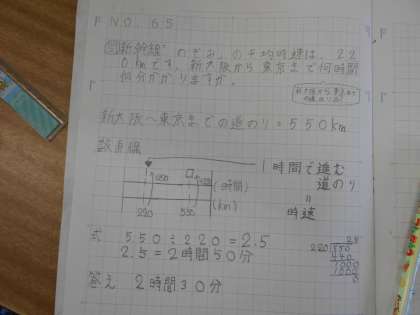 F NO.65
問 新幹線"のぞみ"の平均時速は、22
0kmです。新大阪から東京まで何時間
何分かかりますか。
新大阪〜東京までの道のり=550km
数直線
1時間で進む
道のり
=
時速
1 □ (時間)
220 550 (km)
式 550÷220=2.5
2.5=2時間50分
220 550
440
答え 2時間30分